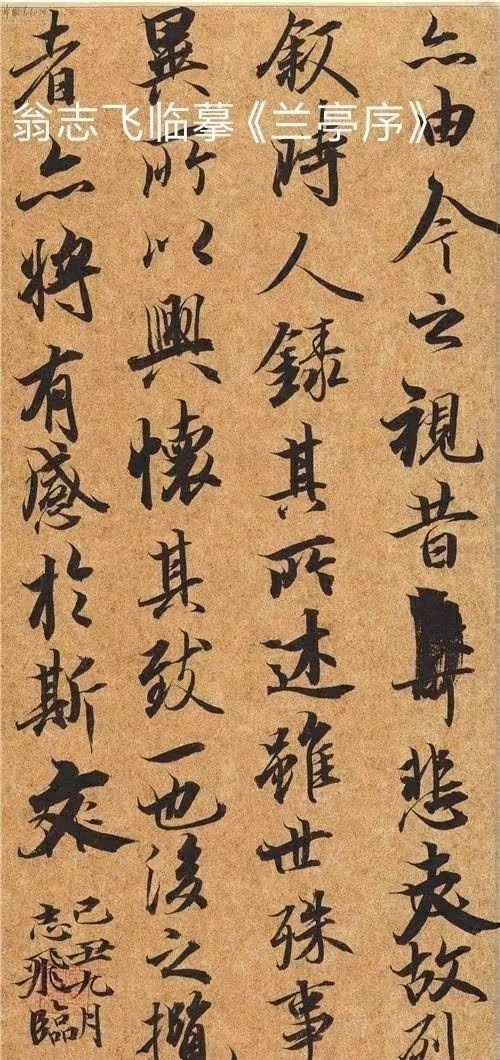 翁志飞临摹《兰亭序》
亦由今之視昔悲夫故列
叙時人錄其所述雖世殊事
異所以興懷其致一也後之攬
者亦將有感於斯文
己丑九月
志飛臨